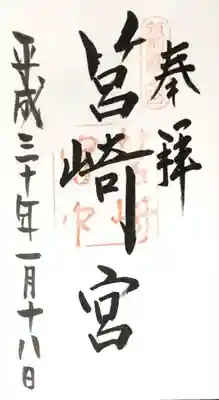 奉拝
筥崎宮
平成三十年一月十八日